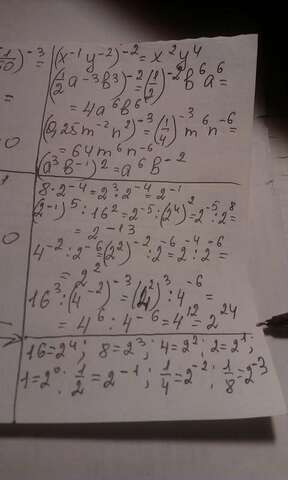 (1/50)⁻³ = (x⁻¹y⁻²)⁻² = x²y⁴
(1/2 a⁻³b³)⁻² = (1/2)⁻² b⁶ a⁶ =
= 4a⁶b⁶
(0,25m⁻²n²)⁻³ = (1/4)⁻³ m⁶n⁻⁶ =
= 64m⁶n⁻⁶
(a³b⁻¹)² = a⁶b⁻²
8·2⁻⁴ = 2³·2⁻⁴ = 2⁻¹
(2⁻¹)⁵ : 16² = 2⁻⁵ : (2⁴)² = 2⁻⁵ : 2⁸
= 2⁻¹³
4⁻² : 2⁻⁶ = (2²)⁻² : 2⁻⁶ = 2⁻⁴ : 2⁻⁶ =
= 2²
16³ : (4⁻²)⁻³ = (4²)³ : 4⁻⁶ =
= 4⁶ : 4⁻⁶ = 4¹² = 2²⁴
16=2⁴; 8=2³; 4=2²; 2=2¹;
1=2⁰; 1/2=2⁻¹; 1/4=2⁻²; 1/8=2⁻³